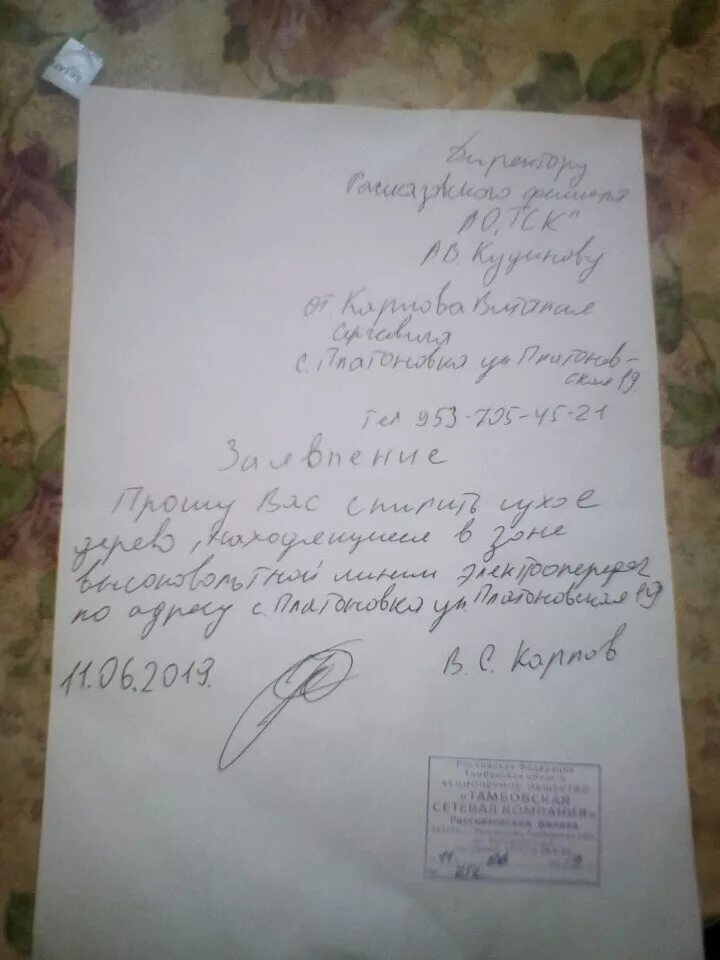 Директору
Рассказовского филиала
АО "ТСК"
А.В. Кудинову
от Карпова Виталия
Сергевича
с. Платоновка ул Платонов-
ская 19.
тел 953-725-45-21
Заявление
Прошу Вас спилить сухое
дерево, находящиеся в зоне
высоковольтной линии электропередач
по адресу с. Платоновка ул Платоновская 19
11.06.2019.
В. С. Карпов
Российская Федерация
Тамбовская область
АКЦИОНЕРНОЕ ОБЩЕСТВО
«ТАМБОВСКАЯ
СЕТЕВАЯ КОМПАНИЯ»
Рассказовский филиал
11 06 19
252